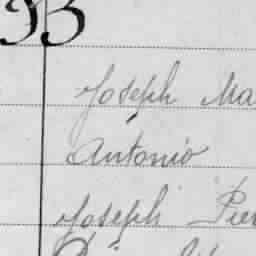 93
Joseph Ma
Antonio
Joseph Pier